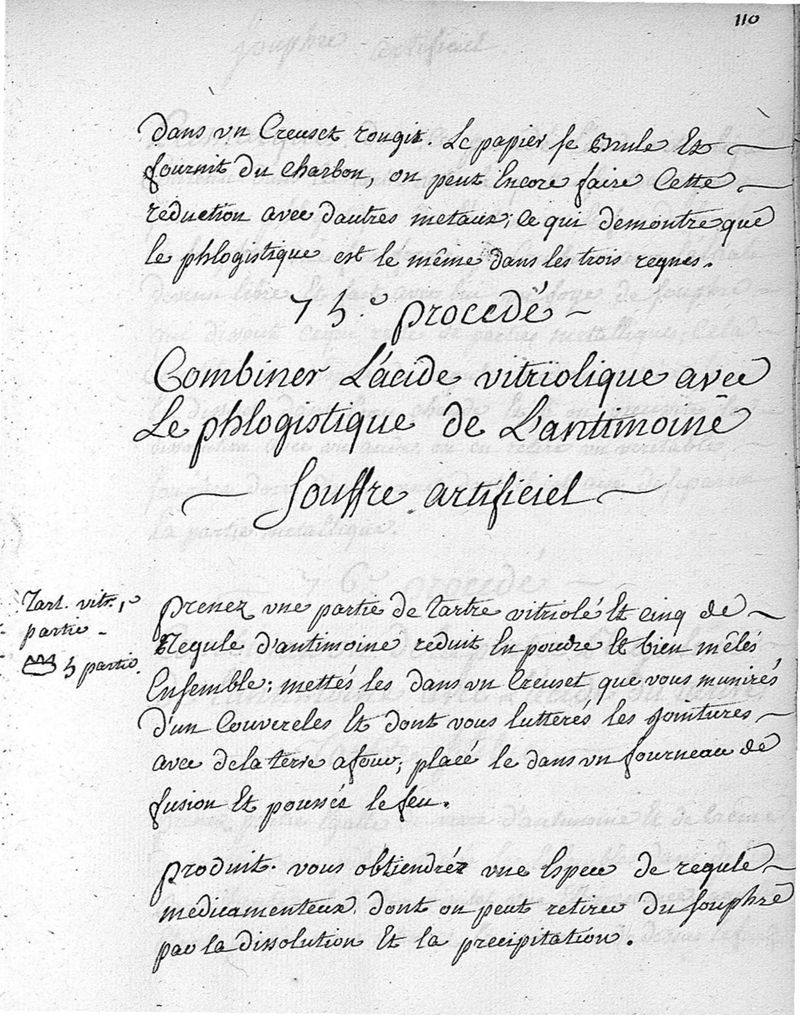 110
dans vn Creuset rougit. Le papier se Brule Et
fournit du charbon, on peut Encore faire Cette
reduction avec d'autres metaux; Ce qui demontre que
le phlogistique est le même dans les trois regnes.
75.e procedé
Combiner L'acide vitriolique avec
Le phlogistique de L'antimoine
Souffre artificiel
Tart. vitr. 1
partie
5 partie.
prenez vne partie de tartre vitriolé Et cinq de
Regule d'antimoine reduit En poudre Et bien mêlés
Ensemble; mettés les dans vn Creuset que vous munirés
d'un Couvercles Et dont vous lutterés les jointures
avec de la terre a four; placé le dans vn fourneau de
fusion Et poussés le feu.
produit. vous obtiendréz vne Espece de regule
medicamenteux dont on peut retirer du souphre
par la dissolution Et la precipitation.